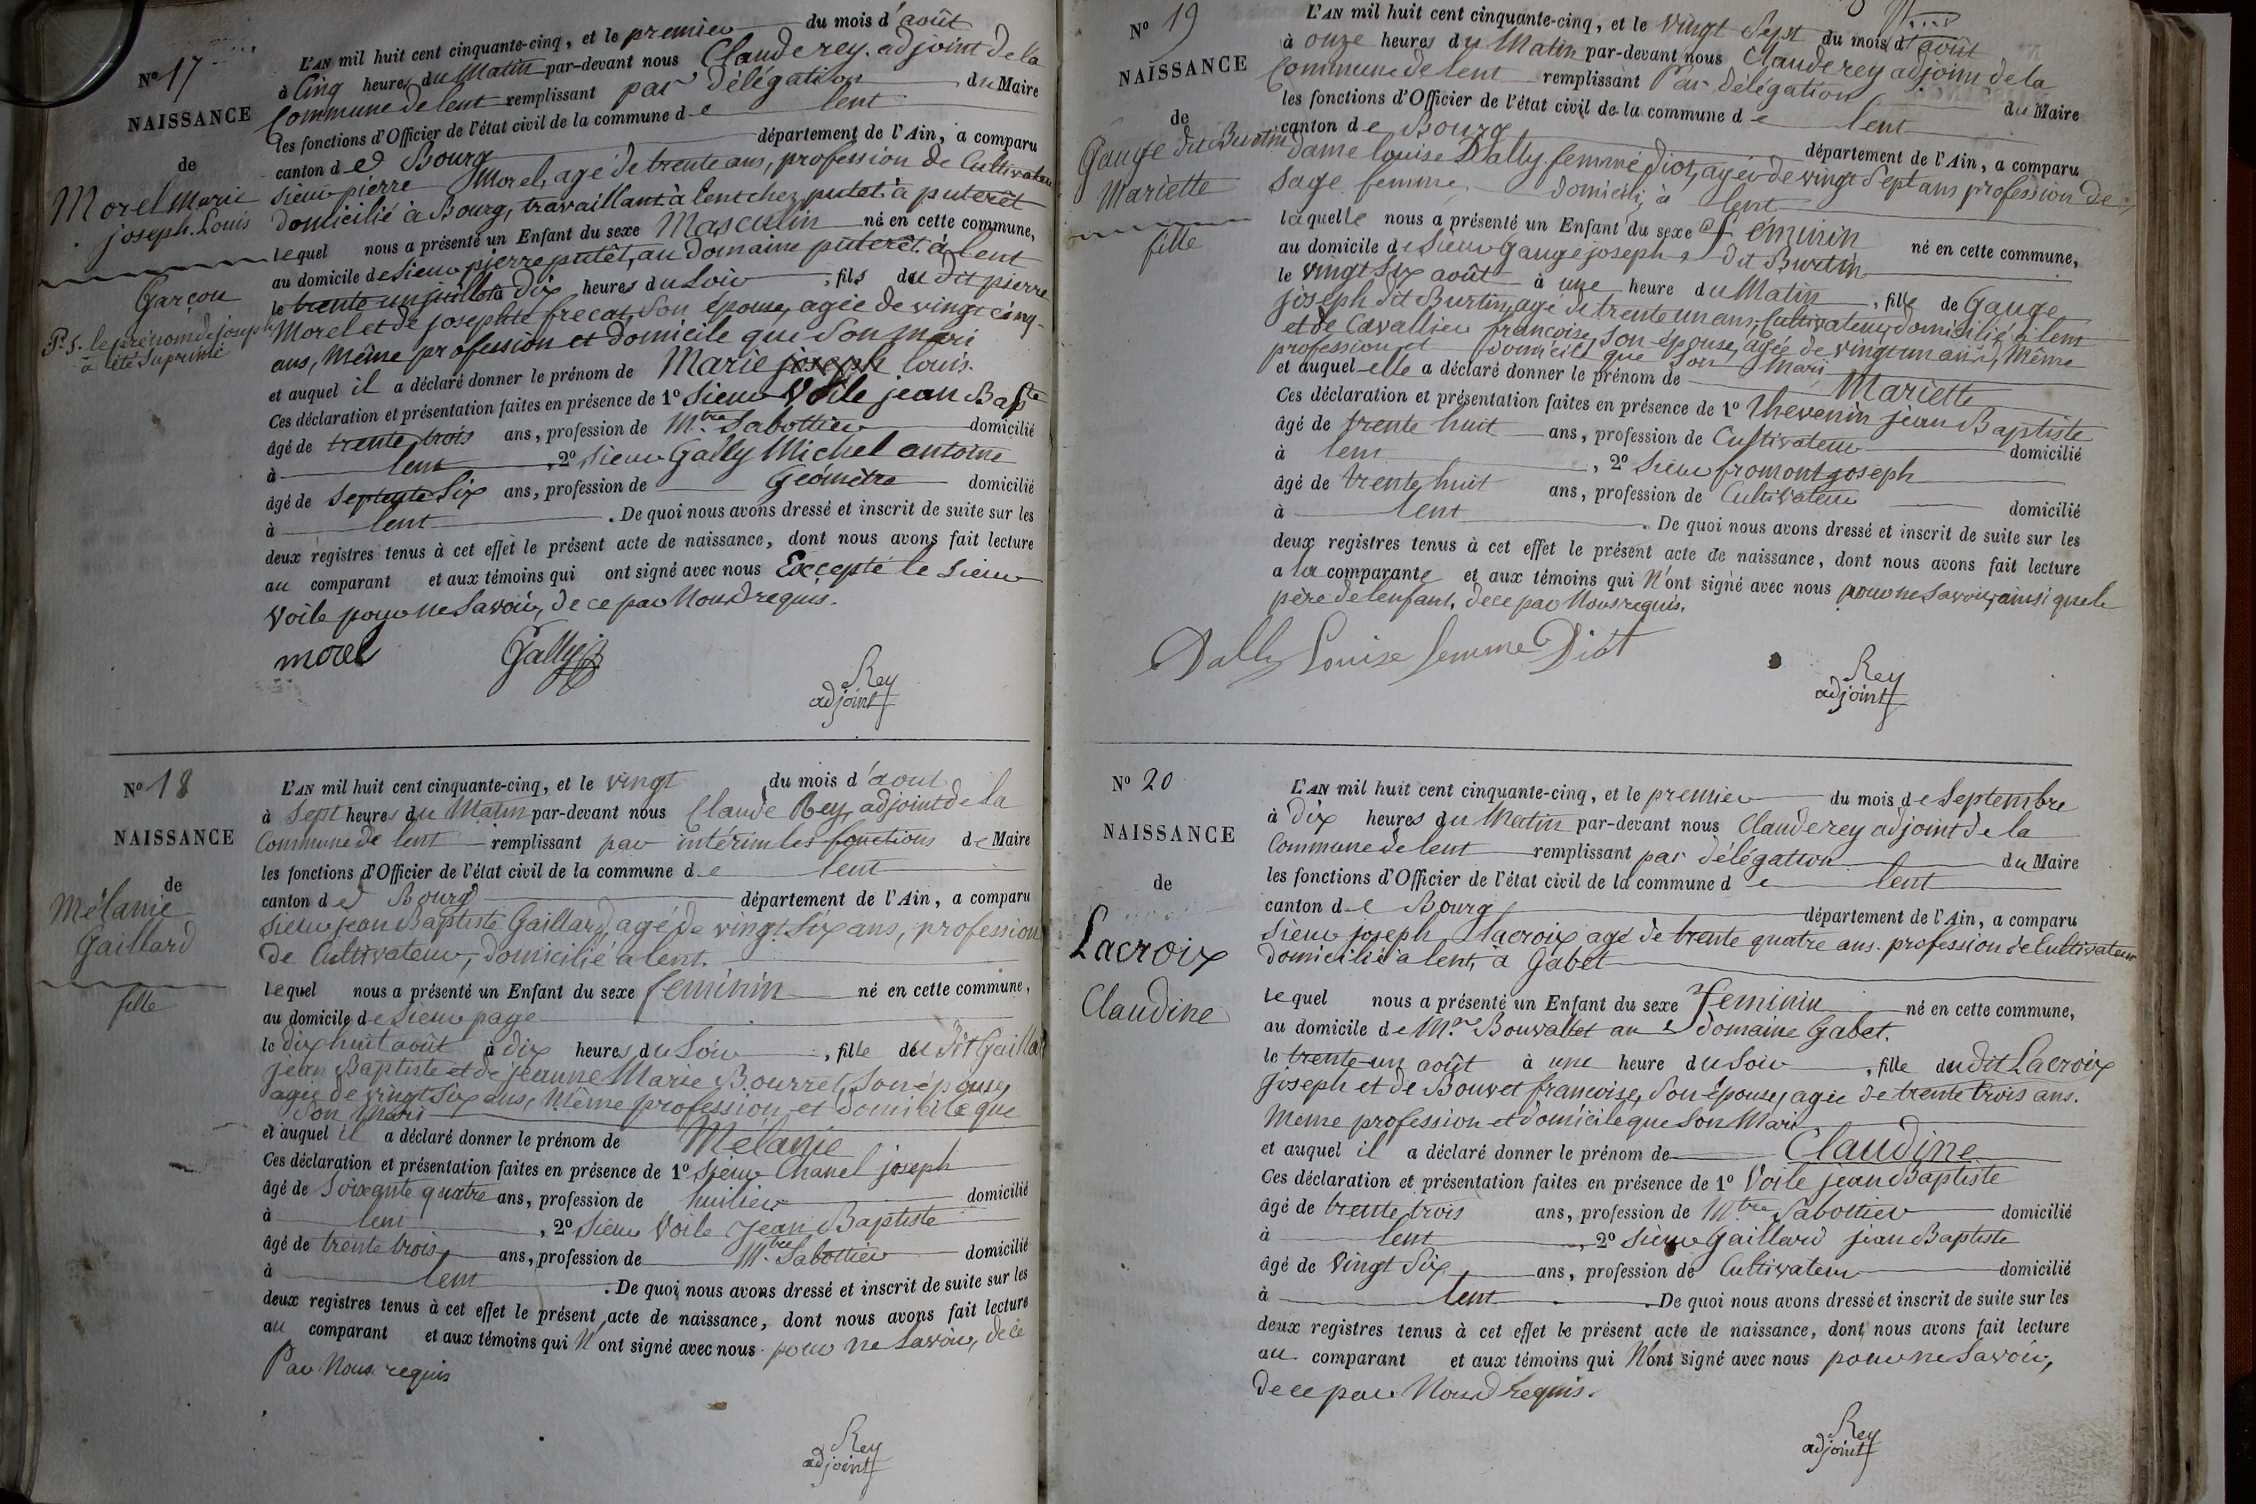 Nº 17
NAISSANCE
de
Morel Marie
joseph. Louis
Garçon
P.S. le prénom de joseph
a été Suprimé
L'AN mil huit cent cinquante-cinq, et le premier du mois d'août
à Cinq heures du Matin par-devant nous Claude rey. adjoint de la
Commune de lent remplissant par délégation du Maire
les fonctions d'Officier de l'état civil de la commune de lent
canton de Bourg département de l'Ain, a comparu
Sieur pierre Morel, agé de trente ans, profession de Cultivateur
domicilié à Bourg, travaillant à lent chez putet à puterêt
lequel nous a présenté un Enfant du sexe Masculin né en cette commune,
au domicile de Sieur pierre putêt, au domaine puterêt à lent
le trente un juillet à Dix heures du Soir , fils du dit pierre
Morel et de josephte frecat, Son épouse, agée de vingt cinq
ans, Même profession et domicile que Son mari
et auquel il a déclaré donner le prénom de Marie joseph louis.
Ces déclaration et présentation faites en présence de 1º Sieur Voile jean Bapte
âgé de trente trois ans, profession de Mtre Sabottier domicilié
à lent , 2º Sieur Gally Michel antoine
âgé de Septente Six ans, profession de Géomètre domicilié
à lent . De quoi nous avons dressé et inscrit de suite sur les
deux registres tenus à cet effet le présent acte de naissance, dont nous avons fait lecture
au comparant et aux témoins qui ont signé avec nous Excepté le Sieur
Voile pour ne Savoir, de ce par Nous requis.
morel Gally
Rey
adjoint
Nº 18
NAISSANCE
de
Mélanie
Gaillard
fille
L'AN mil huit cent cinquante-cinq, et le vingt du mois d'aout
à Sept heures du Matin par-devant nous Claude Rey, adjoint de la
Commune de lent remplissant par intérim les fonctions de Maire
les fonctions d'Officier de l'état civil de la commune de lent
canton de Bourg département de l'Ain, a comparu
Sieur jean Baptiste Gaillard, agé de vingt Six ans, profession
de Cultivateur, domicilié à lent.
lequel nous a présenté un Enfant du sexe feminin né en cette commune,
au domicile de Sieur page
le dix huit août à dix heures du Soir , fille du dit Gaillard
jean Baptiste et de jeanne Marie Bourret, Son épouse,
agée de vingt Six ans, Même profession et domicile que
Son Mari
et auquel il a déclaré donner le prénom de Mélanie
Ces déclaration et présentation faites en présence de 1º Sieur Chanel joseph
âgé de Soixante quatre ans, profession de huilier domicilié
à lent , 2º Sieur Voile Jean Baptiste
âgé de trente trois ans, profession de Mtre Sabottier domicilié
à lent . De quoi nous avons dressé et inscrit de suite sur les
deux registres tenus à cet effet le présent acte de naissance, dont nous avons fait lecture
au comparant et aux témoins qui N'ont signé avec nous pour ne Savoir, de ce
Par Nous requis
Rey
adjoint
Nº 19
NAISSANCE
de
Gauge dit Burtin
Mariette
fille
L'AN mil huit cent cinquante-cinq, et le vingt Sept du mois d'août
à onze heures du Matin par-devant nous Claude rey adjoint de la
Commune de lent remplissant Par délégation du Maire
les fonctions d'Officier de l'état civil de la commune de lent
canton de Bourg département de l'Ain, a comparu
dame louise Dally femme Diot, agée de vingt Sept ans profession de
Sage femme domicilié, à lent
laquelle nous a présenté un Enfant du sexe féminin né en cette commune,
au domicile de Sieur Gauge joseph dit Burtin
le vingt Six août à une heure du Matin , fille de Gauge
joseph dit Burtin, agé de trente un ans, Cultivateur, domicilié à lent
et de Cavallier francoise, Son épouse, agée de vingt un ans, Même
profession et domicile que Son Mari
et auquel elle a déclaré donner le prénom de Mariette
Ces déclaration et présentation faites en présence de 1º Thevenin jean Baptiste
âgé de trente huit ans, profession de Cultivateur domicilié
à lent , 2º Sieur fromont joseph
âgé de trente huit ans, profession de Cultivateur domicilié
à lent . De quoi nous avons dressé et inscrit de suite sur les
deux registres tenus à cet effet le présent acte de naissance, dont nous avons fait lecture
a la comparante et aux témoins qui N'ont signé avec nous pour ne Savoir, ainsi que le
père de lenfant, de ce par Nous requis.
Dally Louise femme Diot
Rey
adjoint
Nº 20
NAISSANCE
de
Lacroix
Claudine
L'AN mil huit cent cinquante-cinq, et le premier du mois de Septembre
à Dix heures du Matin par-devant nous Claude rey adjoint de la
Commune de lent remplissant par délégation du Maire
les fonctions d'Officier de l'état civil de la commune de lent
canton de Bourg département de l'Ain, a comparu
Sieur joseph Lacroix agé de trente quatre ans. profession de Cultivateur
domicilié à lent, à Gabet
lequel nous a présenté un Enfant du sexe feminin né en cette commune,
au domicile de Mr Bouvallet au domaine Gabet.
le trente-un août à une heure du Soir , fille du dit Lacroix
joseph et de Bouvet francoise, Son épouse, agée de trente trois ans.
Même profession et domicile que Son Mari
et auquel il a déclaré donner le prénom de Claudine
Ces déclaration et présentation faites en présence de 1º Voile jean Baptiste
âgé de trente trois ans, profession de Mtre Sabottier domicilié
à lent , 2º Sieur Gaillard jean Baptiste
âgé de Vingt Six ans, profession de Cultivateur domicilié
à lent . De quoi nous avons dressé et inscrit de suite sur les
deux registres tenus à cet effet le présent acte de naissance, dont nous avons fait lecture
au comparant et aux témoins qui N'ont signé avec nous pour ne Savoir,
de ce par Nous requis.
Rey
adjoint